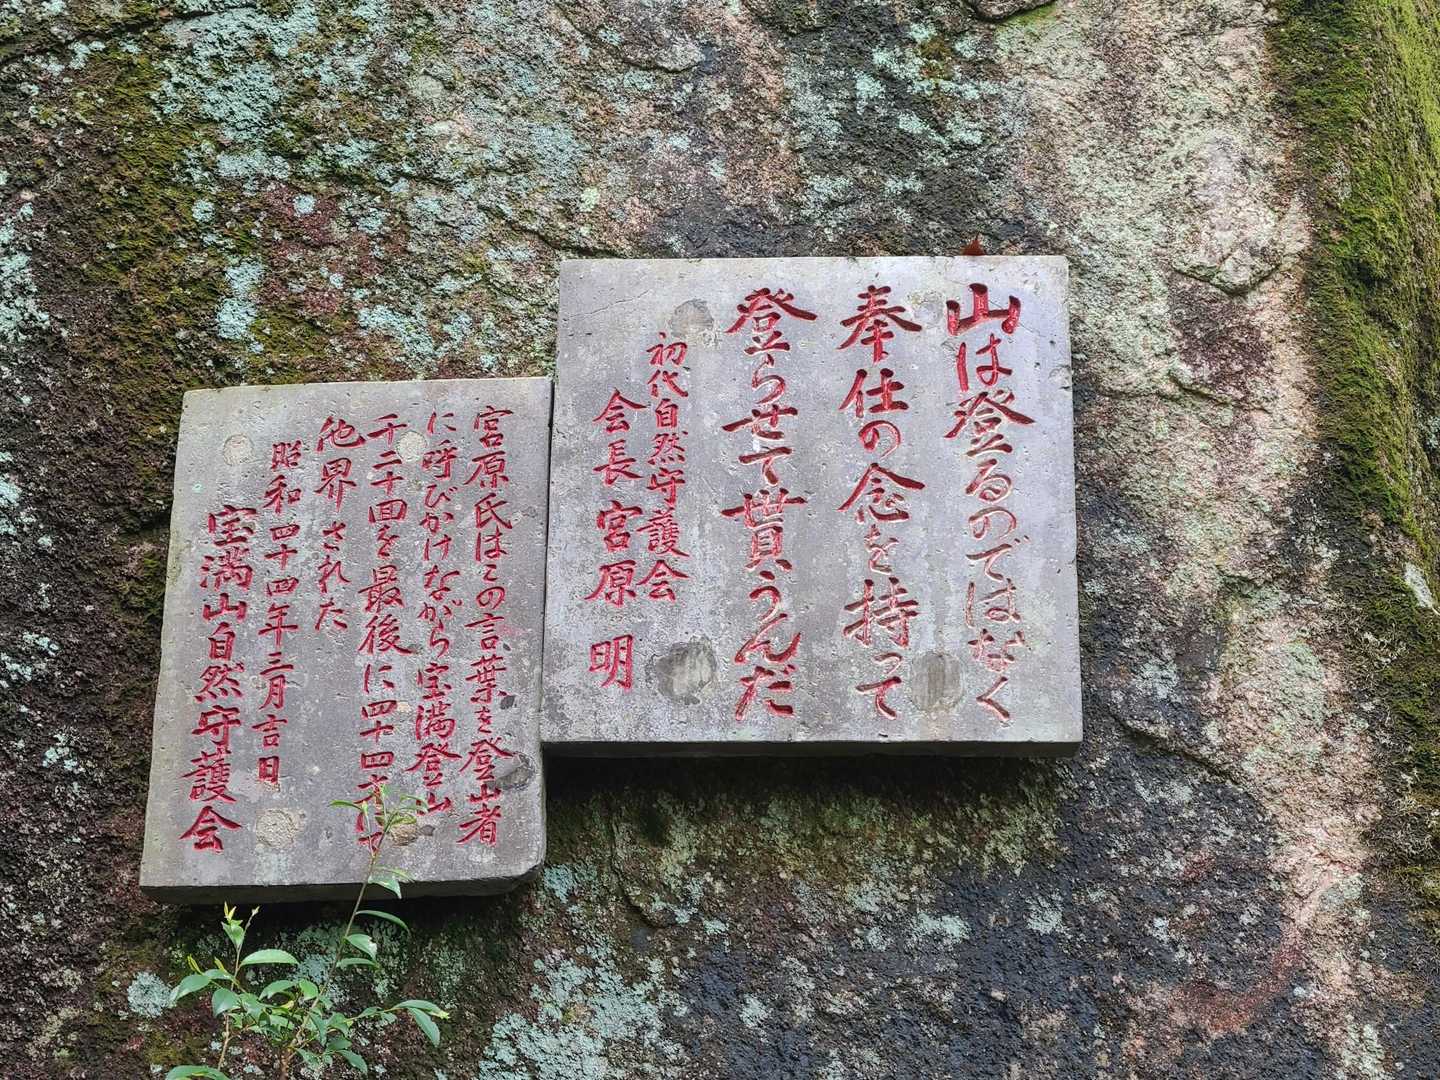 山は登るのではなく
奉仕の念を持って
登らせて貰うんだ
初代自然守護会
会長 宮原 明
宮原氏はこの言葉を登山者
に呼びかけながら宝満登山
千二十囬を最後に四十四
他界された
昭和四十四年三月吉日
宝満山自然守護会